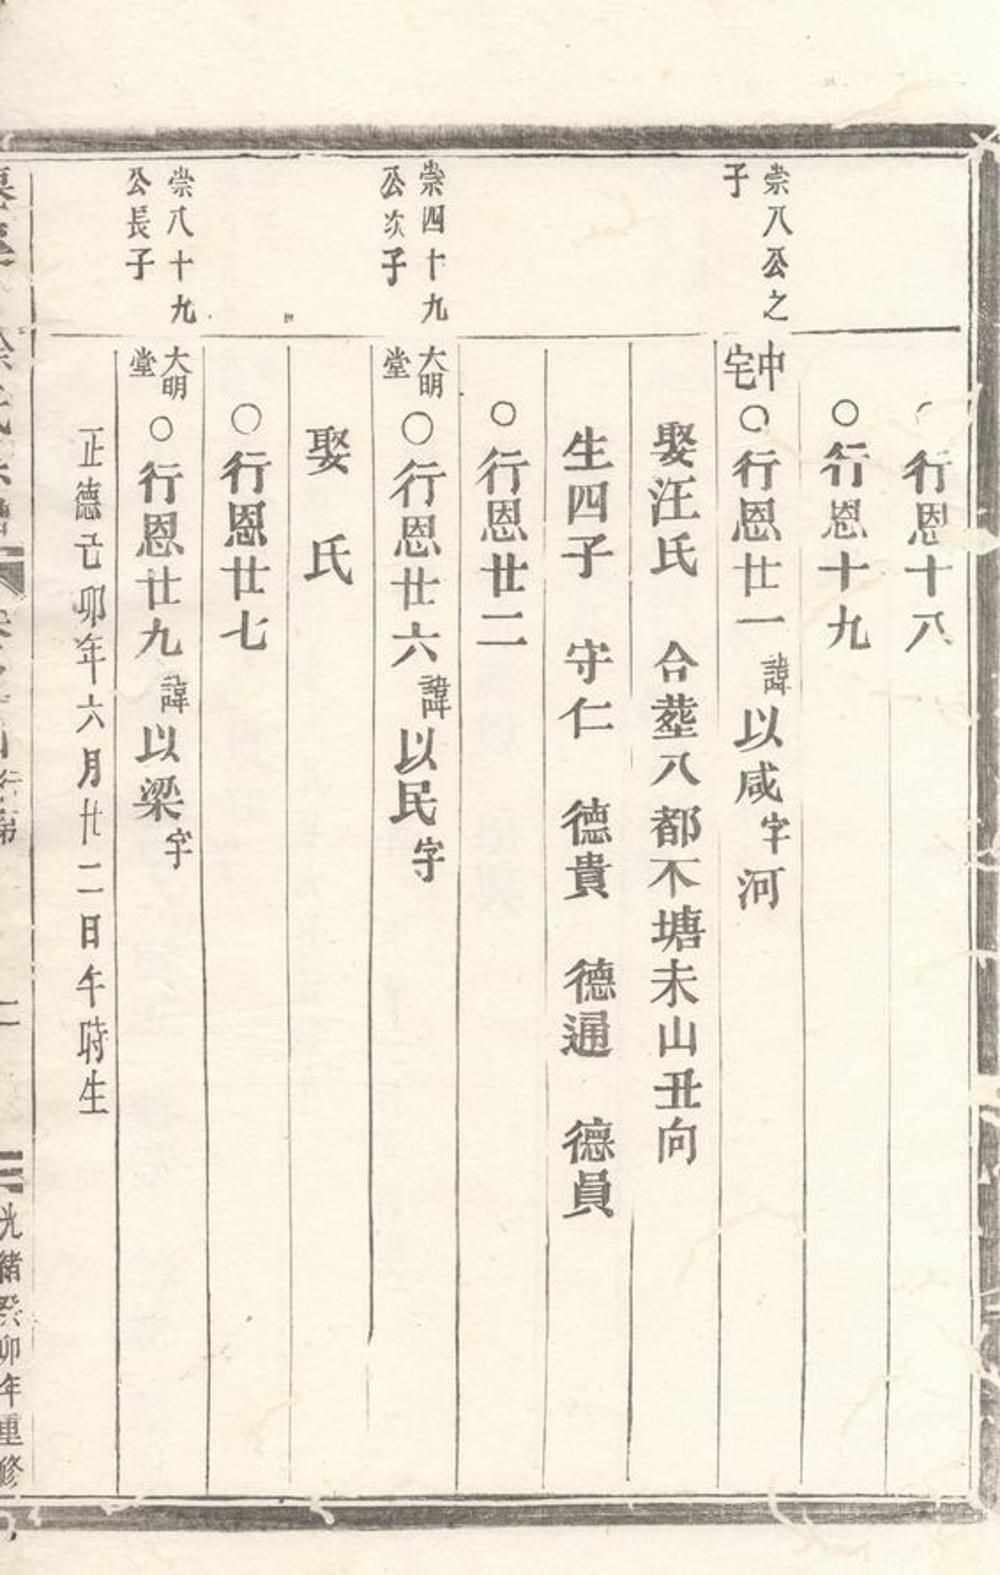 行恩十八
行恩十九
崇八公之
子
中宅
行恩廿一 諱以咸字河
娶汪氏 合塟八都不塘未山丑向
生四子 守仁 德貴 德通 德員
行恩廿二
崇四十九
公次子
大明堂
行恩廿六 諱以民字
娶 氏
行恩廿七
崇八十九
公長子
大明堂
行恩廿九 諱以梁字
正德己卯年六月廿二日午時生
二
光緒癸卯年重修